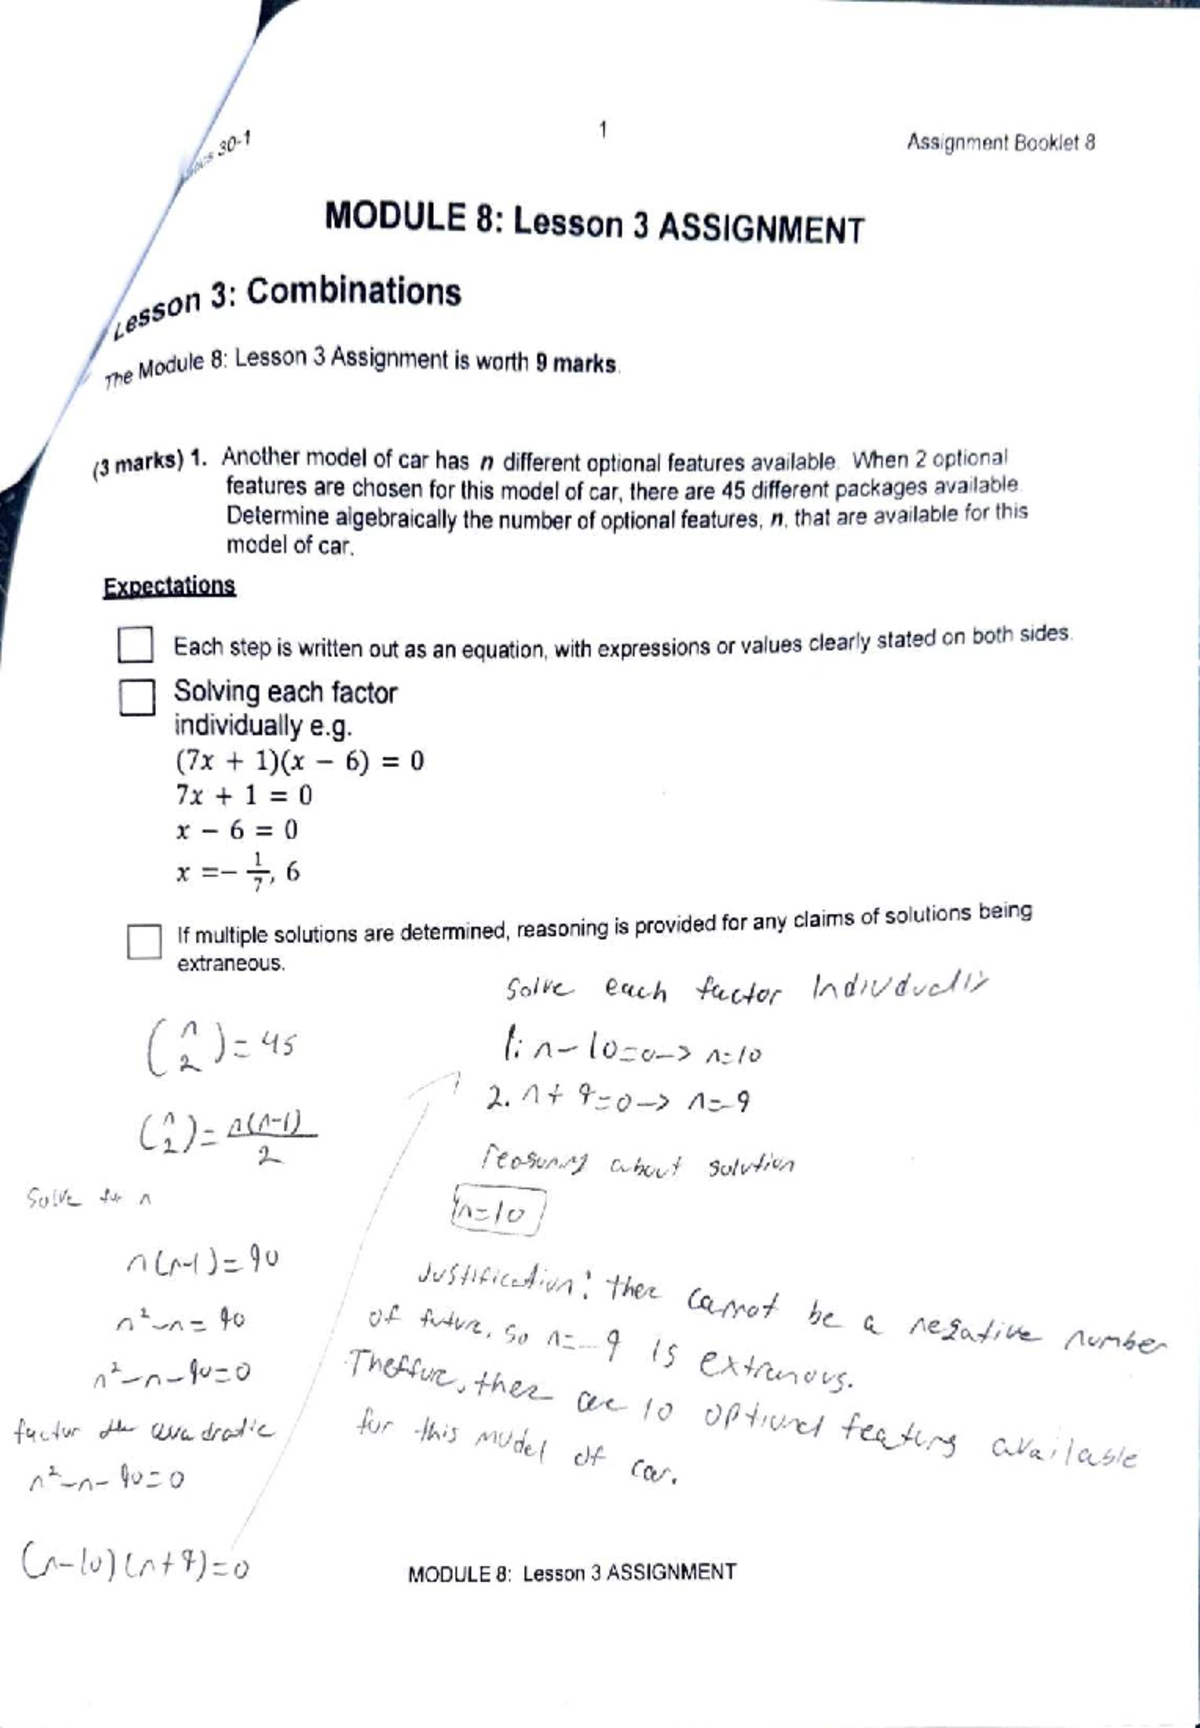 30-1
1
Assignment Booklet 8
MODULE 8: Lesson 3 ASSIGNMENT
Lesson 3: Combinations
The Module 8: Lesson 3 Assignment is worth 9 marks.
(3 marks) 1. Another model of car has n different optional features available. When 2 optional
features are chosen for this model of car, there are 45 different packages available.
Determine algebraically the number of optional features, n, that are available for this
model of car.
Expectations
Each step is written out as an equation, with expressions or values clearly stated on both sides.
Solving each factor
individually e.g.
(7x + 1)(x − 6) = 0
7x + 1 = 0
x − 6 = 0
x =− 1/7, 6
If multiple solutions are determined, reasoning is provided for any claims of solutions being
extraneous.
(n 2) = 45
(n 2) = n(n-1)/2
Solve for n
n(n-1)=90
n²-n=90
n²-n-90=0
factor the quadratic
n²-n-90=0
(n-10)(n+9)=0
Solve each factor Individually
1: n-10=0-> n=10
2. n+9=0-> n=-9
reasoning about solution
n=10
Justification: ther cannot be a negative number
of future, so n=-9 is extranous.
Theffure, ther are 10 optional featurs available
for this model of car.
MODULE 8: Lesson 3 ASSIGNMENT